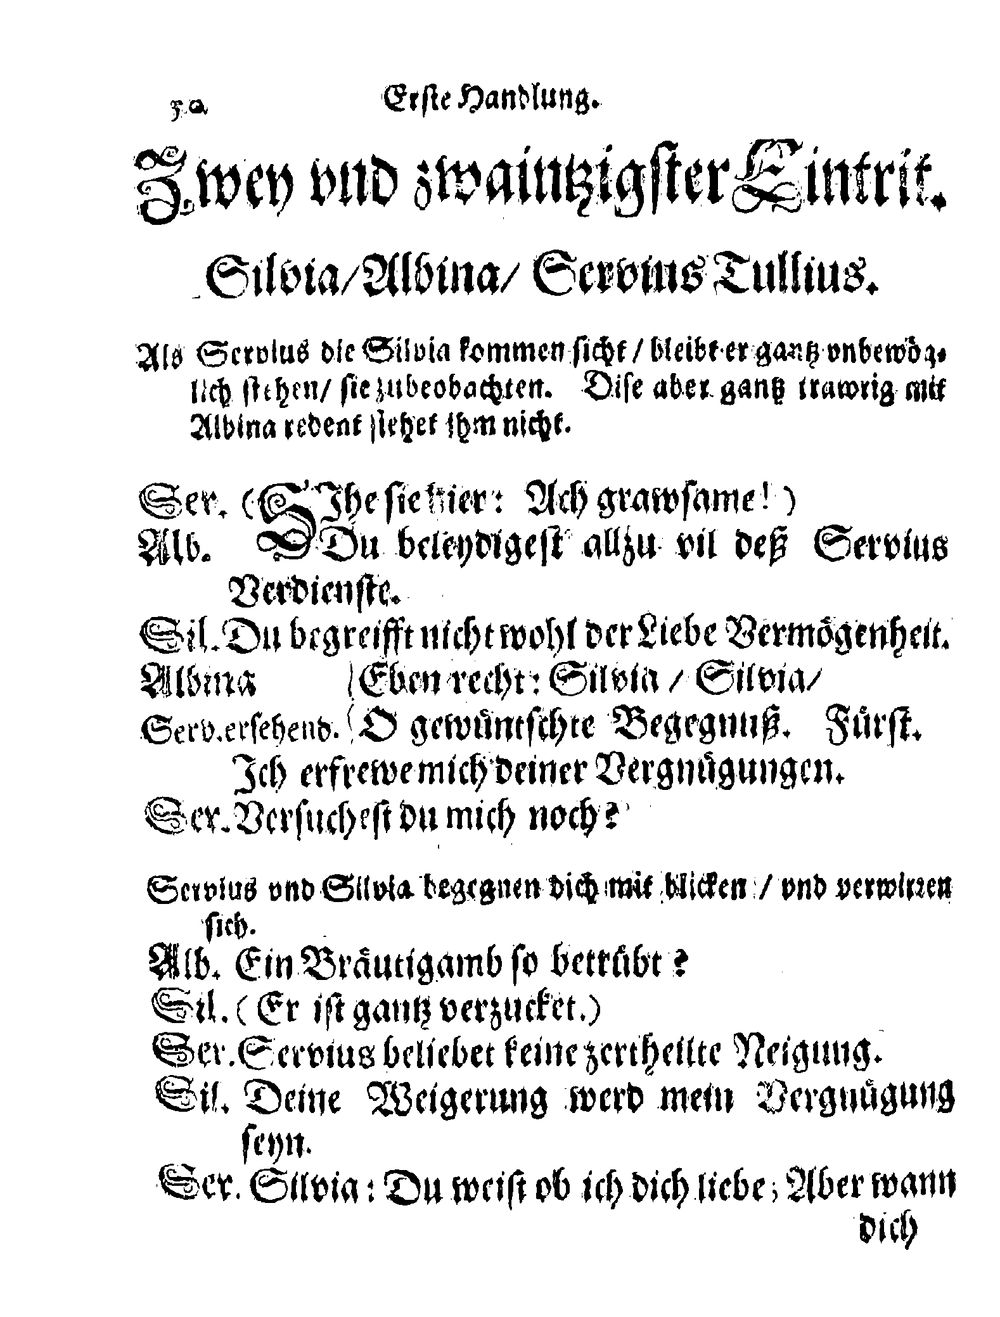 50 Erste Handlung.
Zwey vnd zwaintzigster Eintrit.
Silvia/ Albina/ Servius Tullius.
Als Servius die Silvia kommen sicht / bleibt er gantz vnbewög-
lich stehen/ sie zubeobachten. Dise aber gantz trawrig mit
Albina redent siehet ihm nicht.
Ser. (SIhe sie hier: Ach grawsame! )
Alb. Du beleydigest allzu vil deß Servius
Verdienste.
Sil. Du begreifft nicht wohl der Liebe Vermögenheit.
Albina (Eben recht: Silvia / Silvia/
Serv. ersehend. (O gewüntschte Begegnuß. Fürst.
Ich erfrewe mich deiner Vergnügungen.
Ser. Versuchest du mich noch?
Servius vnd Silvia begegnen dich mit blicken / vnd verwirren
sich.
Alb. Ein Bräutigamb so betrübt?
Sil. ( Er ist gantz verzucket.)
Ser. Servius beliebet keine zertheilte Neigung.
Sil. Deine Weigerung werd mein Vergnügung
seyn.
Ser. Silvia: Du weist ob ich dich liebe; Aber wann
dich